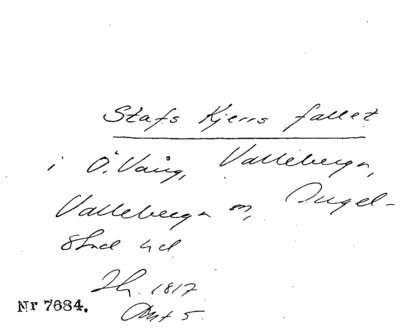 Stafs Kjerrs fallet
i Ö. Vång, Valleberga,
Valleberga sn, Ingel-
stad hd
Sk. 1817
Akt 5
Nr 7684.